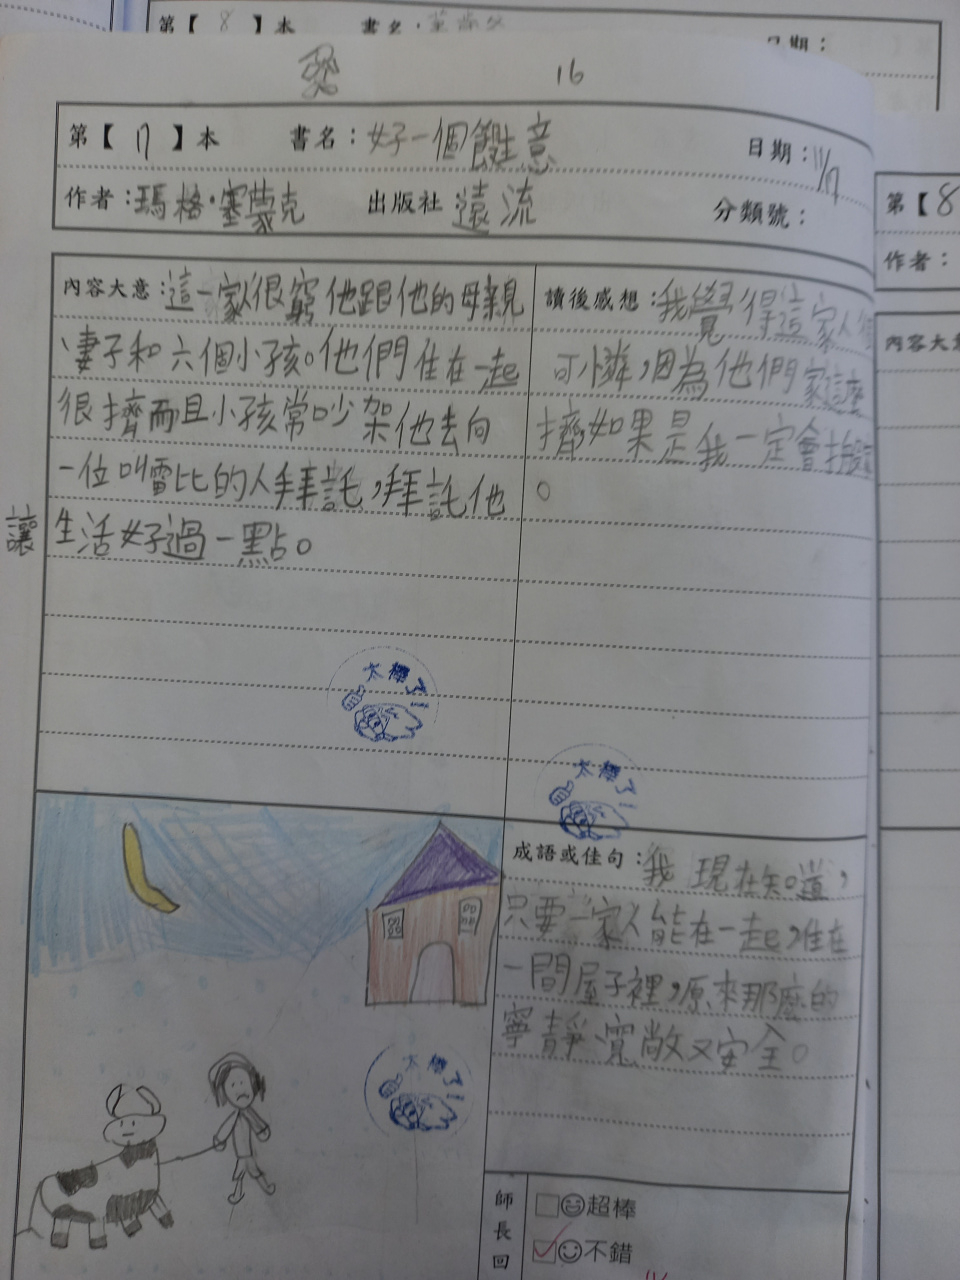 第【 8 】本 書名:
日期:
16
第【 17 】本 書名:好一個餿主意 日期:11/17
作者:瑪格・塞蒙克 出版社 遠流 分類號:
內容大意:這一家很窮他跟他的母親
、妻子和六個小孩。他們住在一起
很擠而且小孩常吵架他去向
一位叫雷比的人拜託,拜託他
讓生活好過一點。
太棒了!!
讀後感想:我覺得這家人
可憐,因為他們家這麼
擠如果是我一定會
。
太棒了!!
成語或佳句:我現在知道,
只要一家人能在一起,住在
一間屋子裡,原來那麼的
寧靜、寬敞又安全。
太棒了!!
師長回
超棒
不錯
第【8
作者:
內容大意